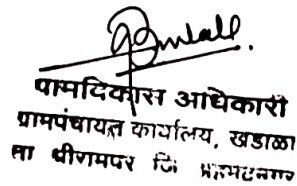 पामविकास अधिकारी
ग्रामपंचायत कार्यालय, खंडाळा
ता श्रीरामपर जि अहमदनगर